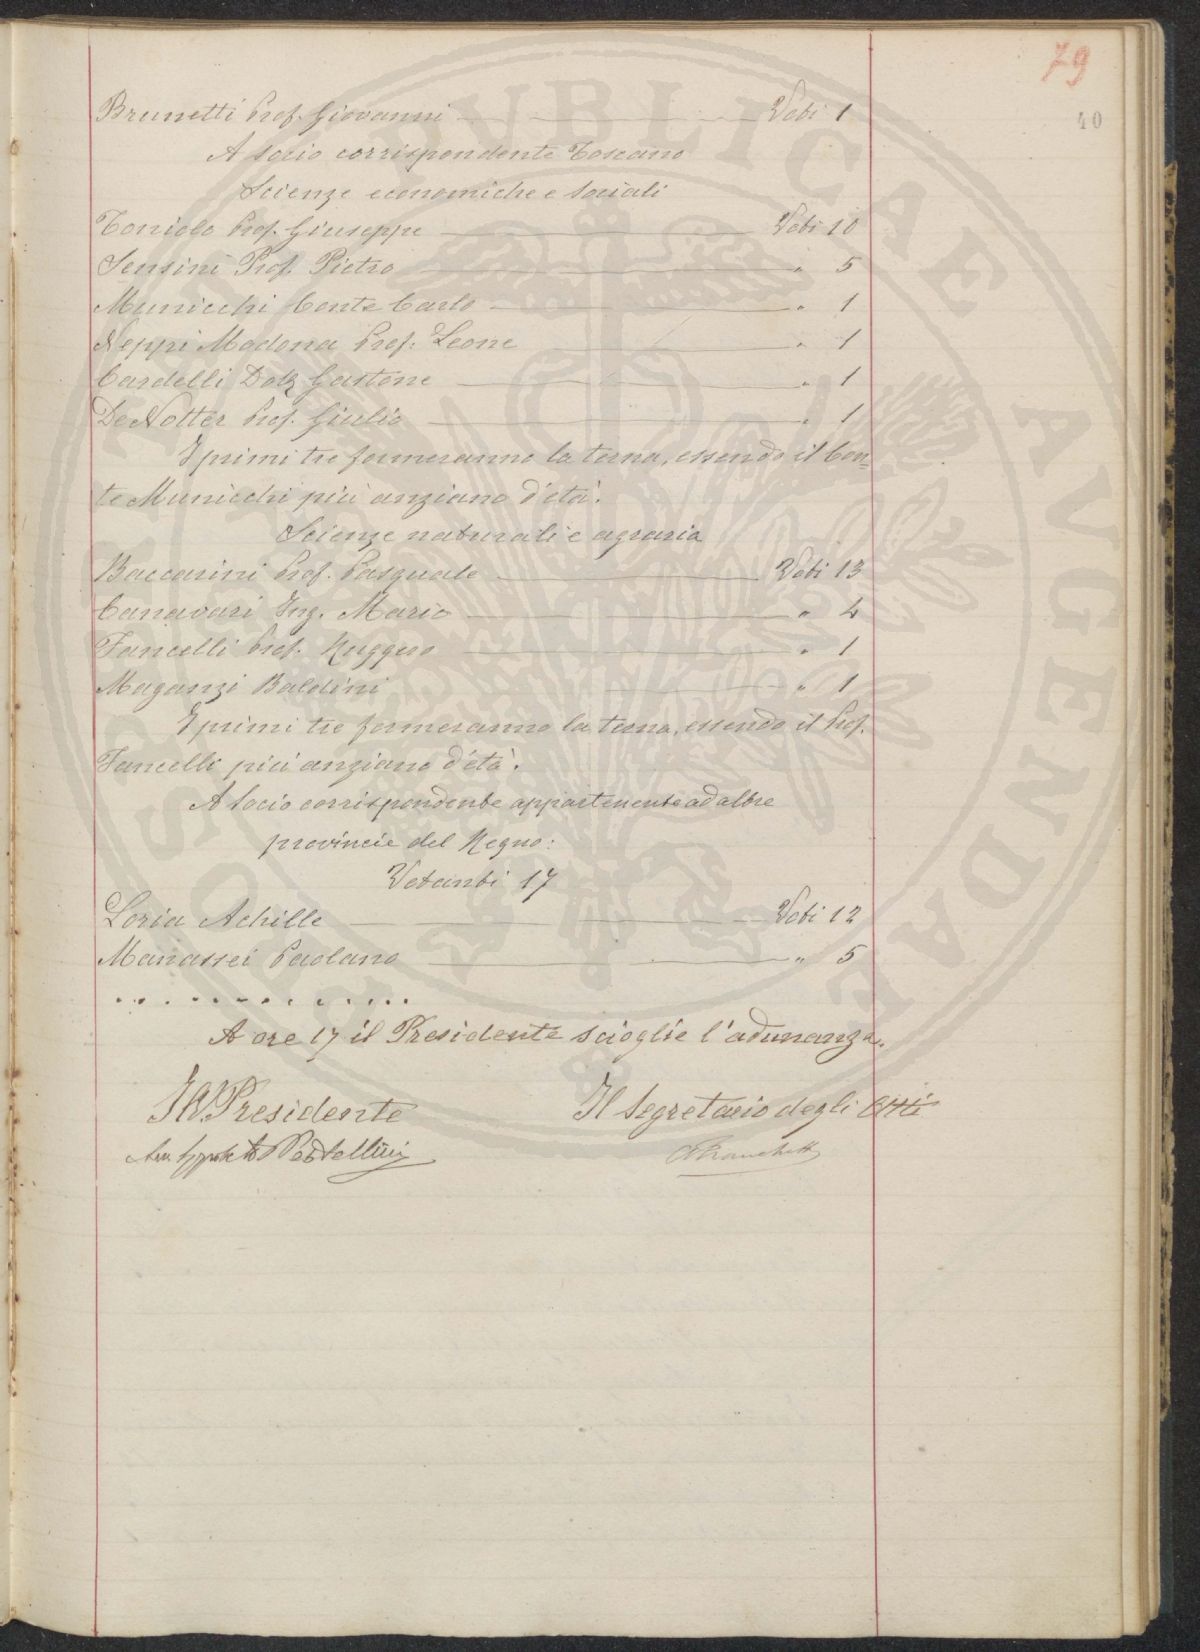 79
40
Brunetti Prof. Giovanni Voti 1
A socio corrispondente Toscano
Scienze economiche e sociali
Toniolo Prof. Giuseppe Voti 10
Sensini Prof. Pietro " 5
Municchi Conte Carlo " 1
Neppi Modona Prof. Leone " 1
Cardelli Dott. Gastone " 1
De Notter Prof. Giulio " 1
I primi tre formeranno la terna, essendo il Con=
te Municchi più anziano d'età.
Scienze naturali e agraria
Baccarini Prof. Pasquale Voti 13
Canavari Ing. Mario " 4
Fancelli Prof. Ruggero " 1
Maganzi Baldini " 1
I primi tre formeranno la terna, essendo il Prof.
Fancelli più anziano d'età.
A socio corrispondente appartenente ad altre
provincie del Regno:
Votanti 17
Loria Achille Voti 12
Manassei Paolano " 5
. . . . . . . . . . . .
A ore 17 il Presidente scioglie l'adunanza.
Il V. Presidente Il Segretario degli Atti
PVBLICAE AVGENDAE PROSPERITATI